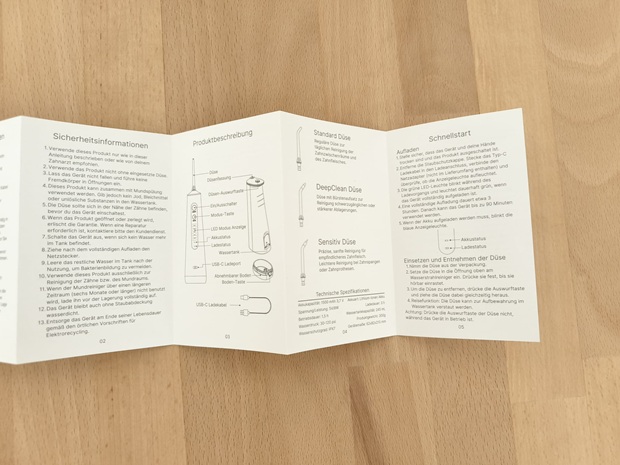 Sicherheitsinformationen
1. Verwende dieses Produkt nur wie in dieser
Anleitung beschrieben oder wie von deinem
Zahnarzt empfohlen.
2. Verwende das Produkt nicht ohne eingesetzte Düse.
3. Lass das Gerät nicht fallen und führe keine
Fremdkörper in Öffnungen ein.
4. Dieses Produkt kann zusammen mit Mundspülung
verwendet werden. Gib jedoch kein Jod, Bleichmittel
oder unlösliche Substanzen in den Wassertank.
5. Die Düse sollte sich in der Nähe der Zähne befinden,
bevor du das Gerät einschaltest.
6. Wenn das Produkt geöffnet oder zerlegt wird,
erlischt die Garantie. Wenn eine Reparatur
erforderlich ist, kontaktiere bitte den Kundendienst.
7. Schalte das Gerät aus, wenn sich kein Wasser mehr
im Tank befindet.
8. Ziehe nach dem vollständigen Aufladen den
Netzstecker.
9. Leere das restliche Wasser im Tank nach der
Nutzung, um Bakterienbildung zu vermeiden.
10. Verwende dieses Produkt ausschließlich zur
Reinigung der Zähne bzw. des Mundraums.
11. Wenn der Mundreiniger über einen längeren
Zeitraum (sechs Monate oder länger) nicht benutzt
wird, lade ihn vor der Lagerung vollständig auf.
12. Das Gerät bleibt auch ohne Staubabdeckung
wasserdicht.
13. Entsorge das Gerät am Ende seiner Lebensdauer
gemäß den örtlichen Vorschriften für
Elektrorecycling.
02
Produktbeschreibung
Düse
Düsenfassung
Düsen-Auswurftaste
Ein/Ausschalter
Modus Taste
LED Modus Anzeige
Akkustatus
Ladestatus
Wassertank
USB-C Ladeport
Abnehmbarer Boden
Boden Taste
USB-C Ladekabel
03
Standard Düse
Reguläre Düse zur
täglichen Reinigung der
Zahnzwischenräume und
des Zahnfleisches.
DeepClean Düse
Düse mit Bürstenaufsatz zur
Reinigung tieferer
stärkerer Ablagerungen.
Sensitiv Düse
Präzise, sanfte Reinigung für
empfindliches Zahnfleisch.
Leichtere Reinigung bei Zahnspangen
oder Zahnprothesen.
Technische Spezifikationen
04
Schnellstart
Aufladen
1. Stelle sicher, dass das Gerät und deine Hände
trocken sind und das Produkt ausgeschaltet ist.
2. Entferne die Staubschutzkappe. Stecke das Typ-C
Ladekabel in den Ladeanschluss, verbinde den
Netzstecker (nicht im Lieferumfang enthalten) und
überprüfe, ob die Anzeigeleuchte aufleuchtet.
3. Die grüne LED Leuchte blinkt während des
Ladevorgangs und leuchtet dauerhaft grün, wenn
das Gerät vollständig aufgeladen ist.
4. Eine vollständige Aufladung dauert etwa 3
Stunden. Danach kann das Gerät bis zu 90 Minuten
verwendet werden.
5. Wenn der Akku aufgeladen werden muss, blinkt die
blaue Anzeigeleuchte.
Akkustatus
Ladestatus
Einsetzen und Entnehmen der Düse
1. Nimm die Düse aus der Verpackung.
2. Setze die Düse in die Öffnung oben am
Wasserstrahlreiniger ein. Drücke sie fest, bis sie
hörbar einrastet.
3. Um die Düse zu entfernen, drücke die Auswurftaste
und ziehe die Düse dabei gleichzeitig heraus.
4. Reisefunktion: Die Düse kann zur Aufbewahrung im
Wassertank verstaut werden.
Achtung: Drücke die Auswurftaste der Düse nicht,
während das Gerät in Betrieb ist.
05